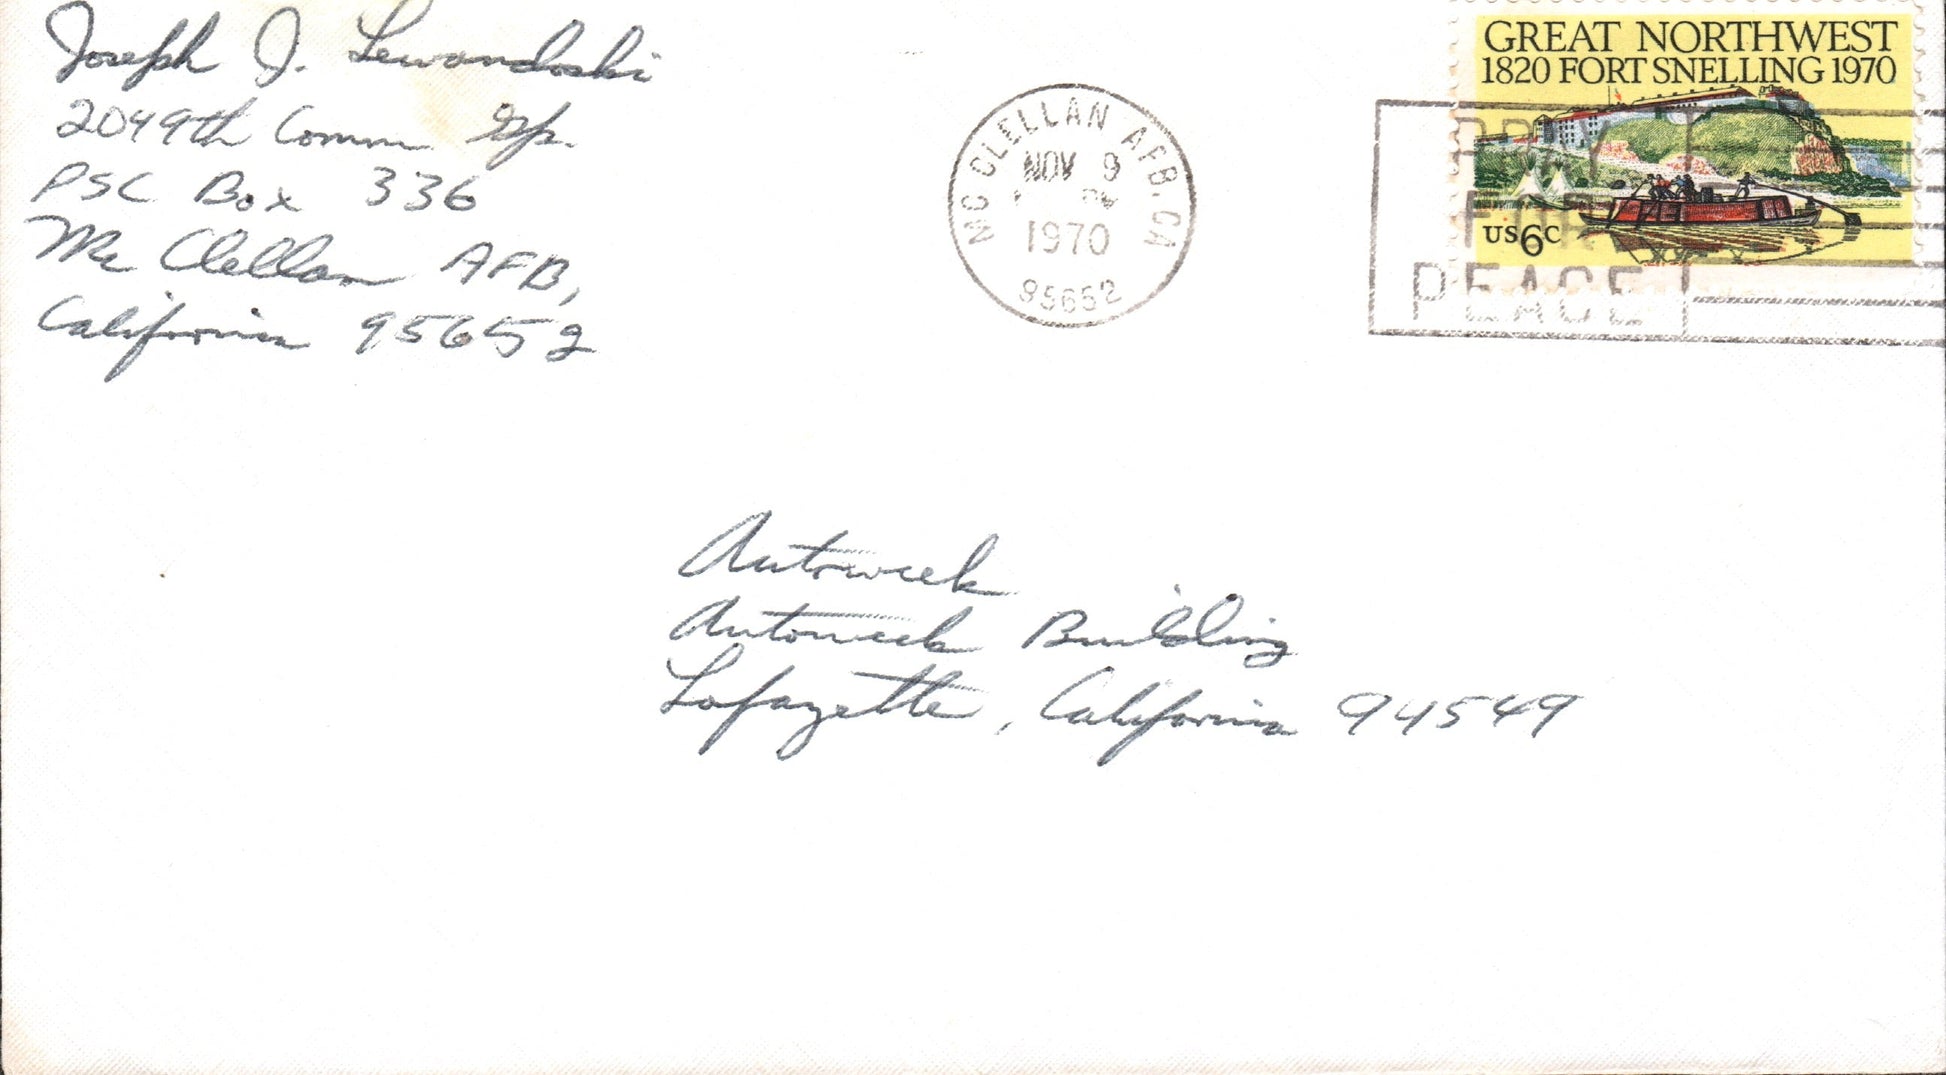 Joseph J. Lewandoski
2049th Comm Gp.
PSC Box 336
Mc Clellan AFB,
California 95652
MC CLELLAN AFB. CA
NOV 9
PM
1970
95652
GREAT NORTHWEST
1820 FORT SNELLING 1970
US 6C
PRAY
FOR
PEACE
Autoweek
Autoweek Building
Lafayette, California 94549